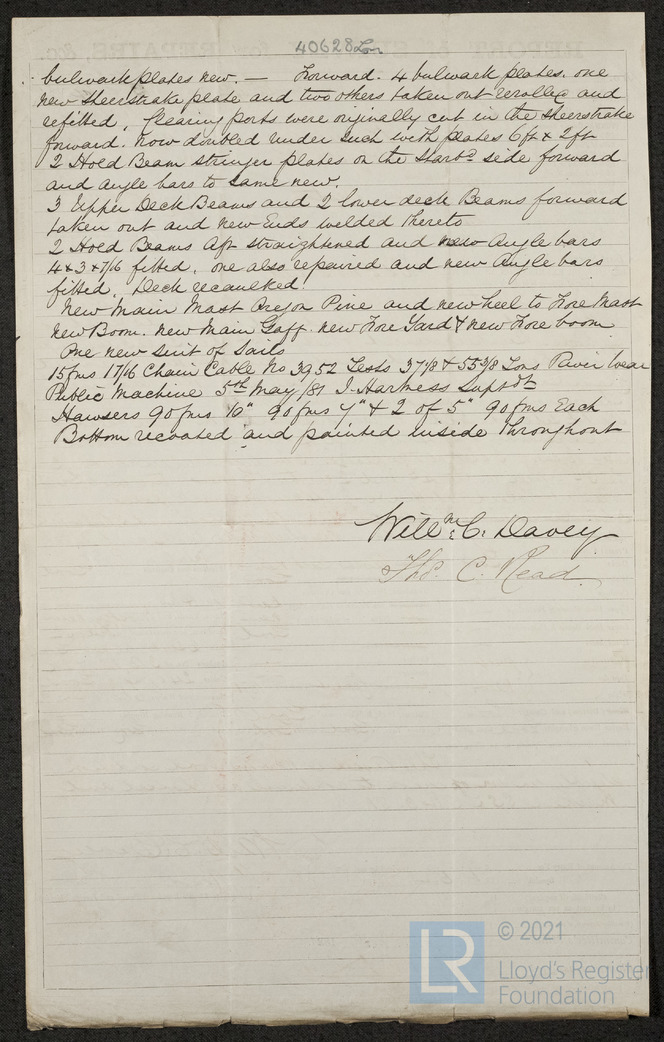 40628 Lon
bulwark plates new. — Forward. 4 bulwark plates. one
new sheerstrake plate and two others taken out rerolled and
refitted. Clearing ports were originally cut in the sheerstrake
forward. now doubled under such with plates 6ft x 2ft
2 Hold Beam stringer plates on the Starbd side forward
and angle bars to same new.
3 Upper Deck Beams and 2 lower deck Beams forward
taken out and new Ends welded thereto
2 Hold Beams Aft straightened and new Angle bars
4 x 3 x 7/16 fitted, one also repaired and new Angle bars
fitted. Deck recaulked.
New Main Mast Oregon Pine and new heel to Fore Mast
New Boom. New Main Gaff. new Fore Yard & new Fore boom
One new suit of Sails
15 fms 1 7/16 Chain Cable No 3952 Tests 37 1/8 & 55 3/8 Tons River Wear
Public Machine 5th May /81 J. Hartness Supdt
Hawsers 90 fms 10" 90 fms 7" & 2 of 5" 90 fms Each
Bottom recoated and painted inside throughout
Willm C. Davey
Thos. C. Read
LR
© 2021
Lloyd's Register
Foundation